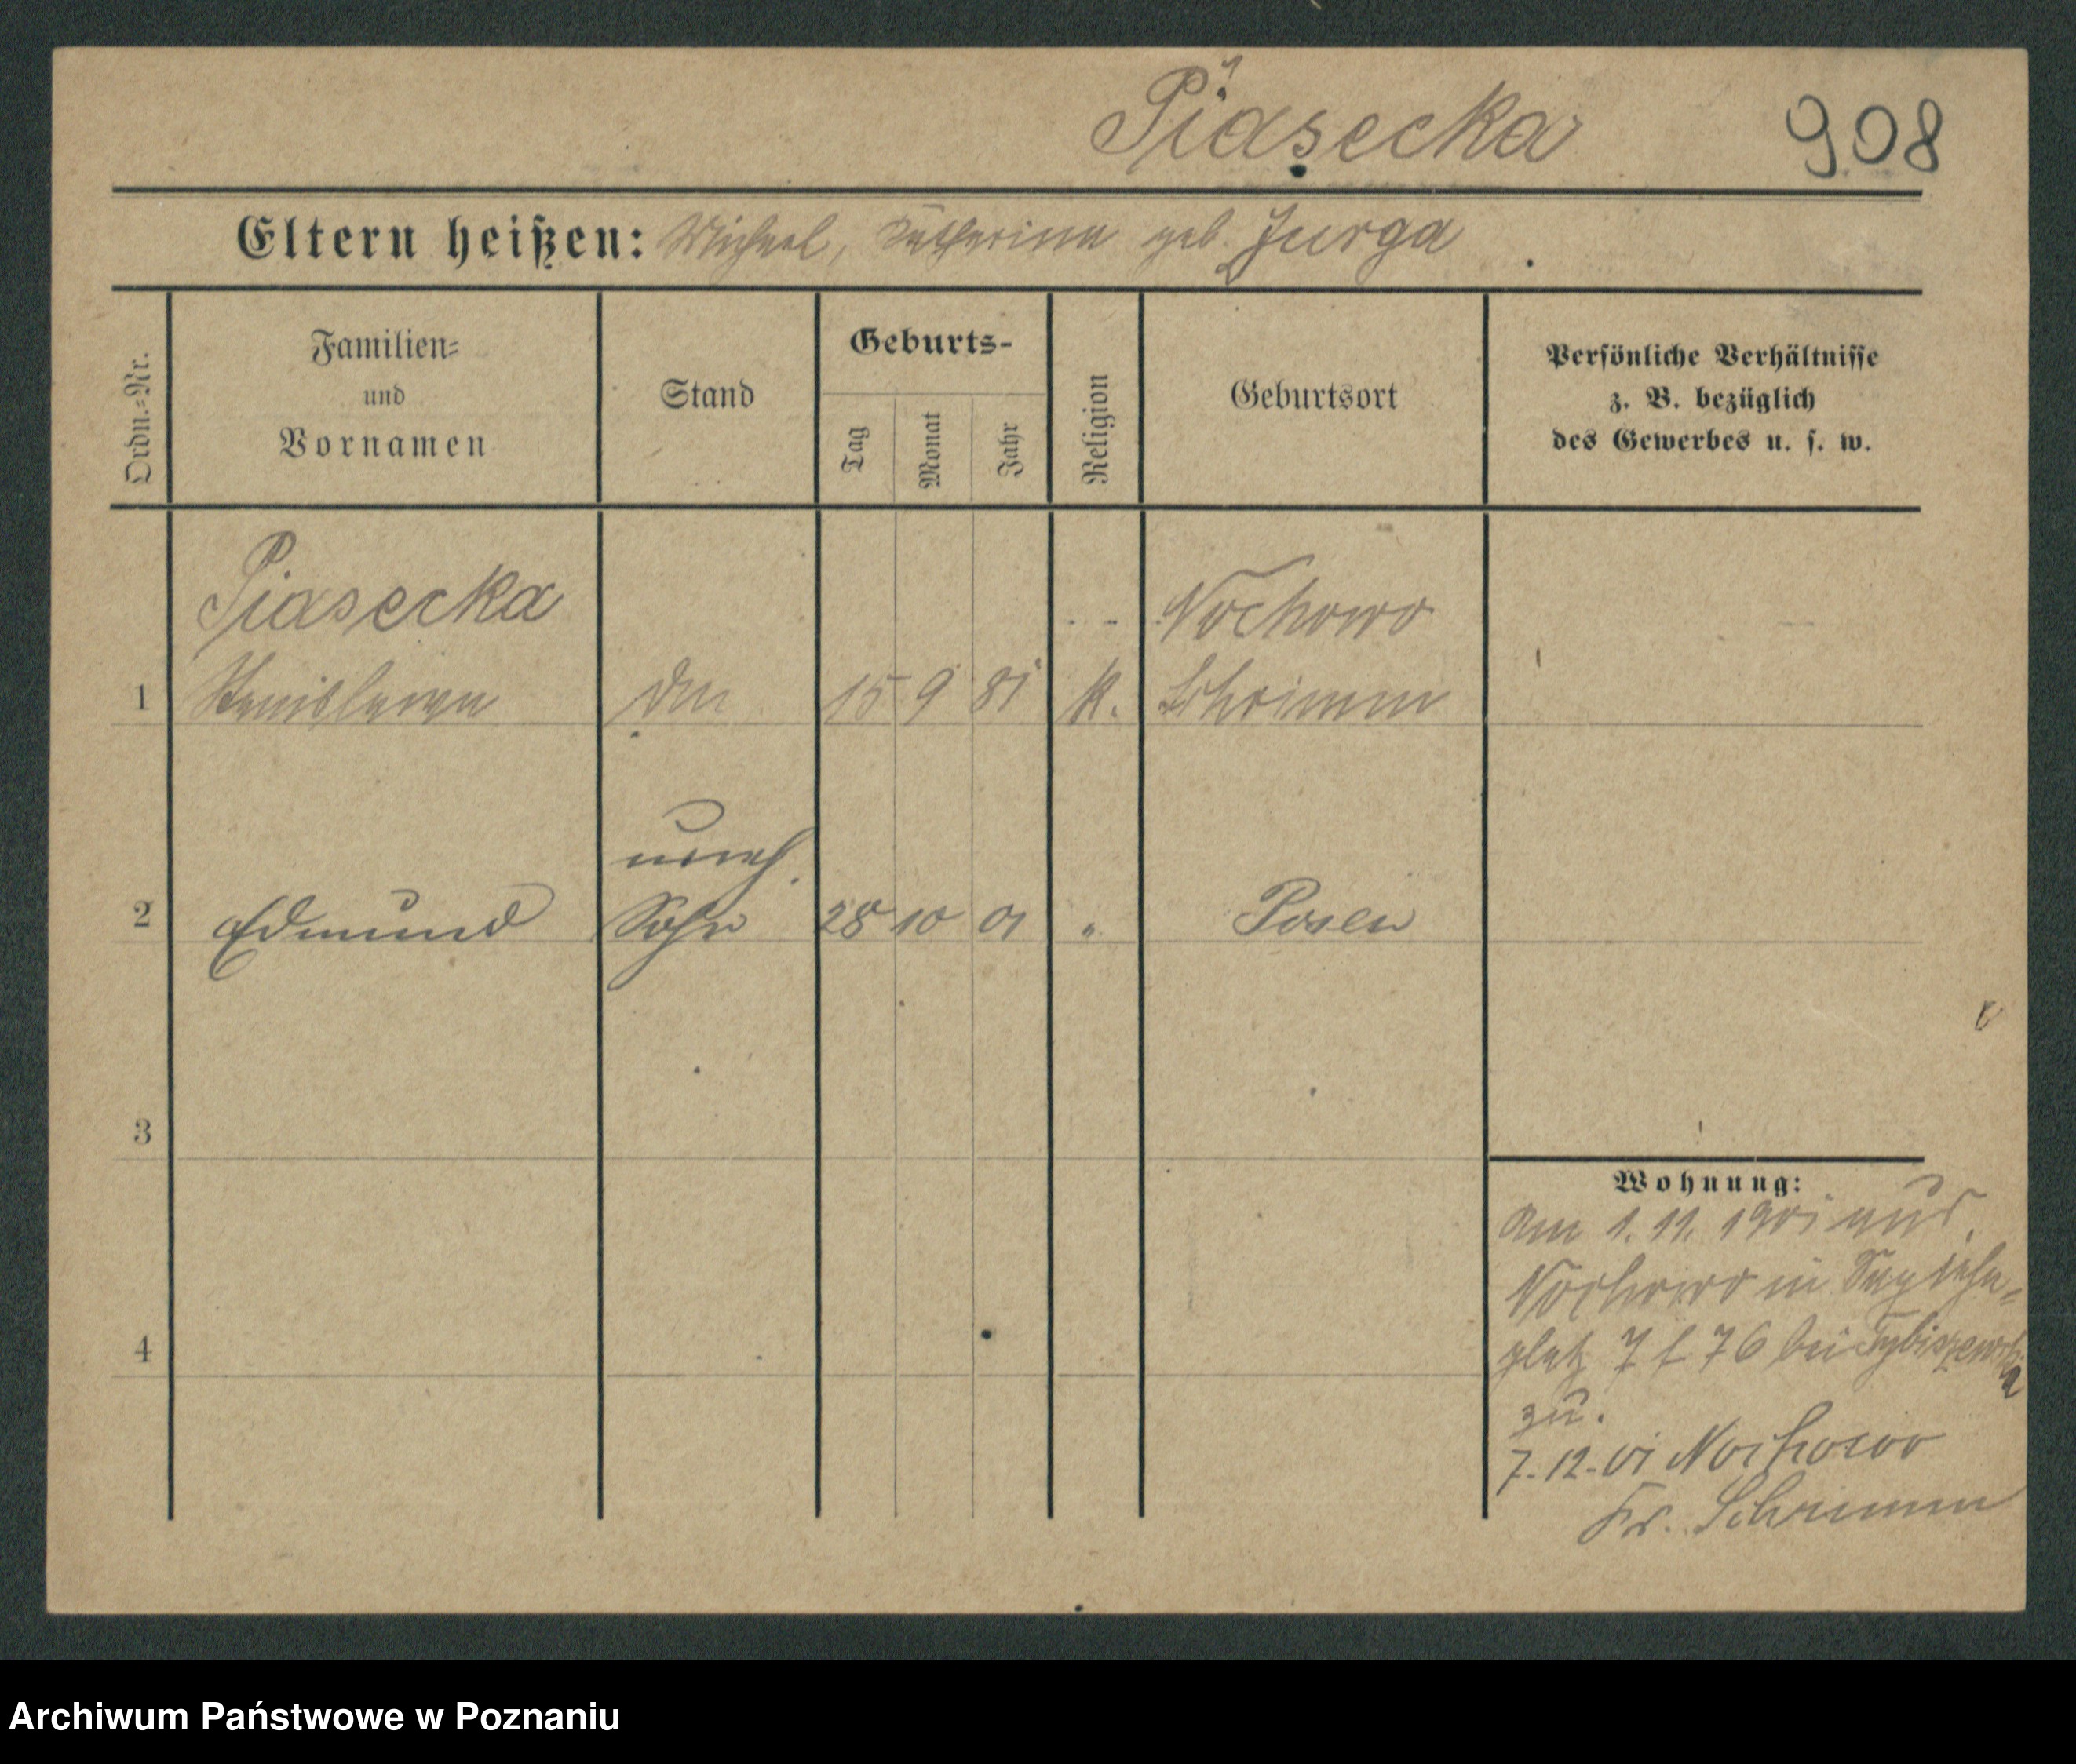 Piasecka 908
Eltern heißen: Michael, Katharina geb. Jurga
Ordn.=Nr.
Familien=
und
Vornamen
Stand
Geburts-
Tag
Monat
Jahr
Religion
Geburtsort
Persönliche Verhältnisse
z. B. bezüglich
des Gewerbes u. s. w.
Piasecka Nochowo
1 Stanislawa 15 9 81 K. Schrimm
uneh.
2 Edmund Sohn 28 10 01 " Posen
3
4
Wohnung:
Am 1. 11. 1901 aus
Nochowo in Sapieha=
platz 7 bei
zu.
7.-12.-01 Nochowo
Kr. Schrimm
Archiwum Państwowe w Poznaniu